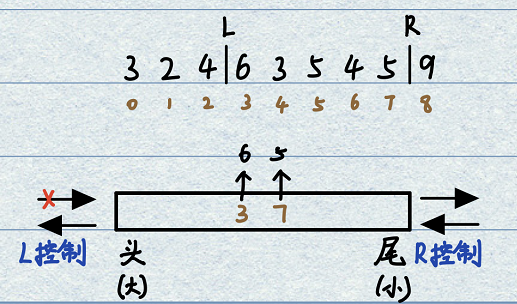 L R
3 2 4 | 6 3 5 4 5 | 9
0 1 2 3 4 5 6 7 8
6 5
3 7
L控制 头 尾 R控制
(大) (小)